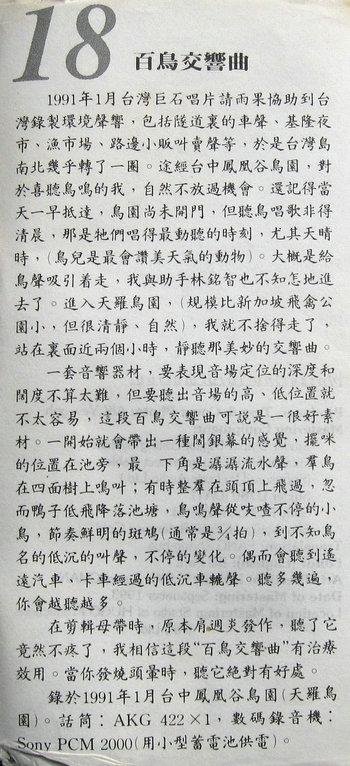 18 百鳥交響曲
1991年1月台灣巨石唱片請雨果協助到台
灣錄製環境聲響，包括隧道裏的車聲、基隆夜
市、漁市場、路邊小販叫賣聲等，於是台灣島
南北幾乎轉了一圈。途經台中鳳凰谷鳥園，對
於喜聽鳥鳴的我，自然不放過機會。還記得當
天一早抵達，鳥園尚未開門，但聽鳥唱歌非得
清晨，那是牠們唱得最動聽的時刻，尤其天晴
時，(鳥兒是最會讚美天氣的動物)。大概是給
鳥聲吸引着走，我與助手林銘智也不知怎地進
去了。進入天羅鳥園，(規模比新加坡飛禽公
園小，但很清靜、自然)，我就不捨得走了，
站在裏面近兩個小時，靜聽那美妙的交響曲。
一套音響器材，要表現音場定位的深度和
闊度不算太難，但要聽出音場的高、低位置就
不太容易，這段百鳥交響曲可說是一很好素
材。一開始就會帶出一種闊銀幕的感覺，擺咪
的位置在池旁，最 下角是潺潺流水聲，羣鳥
在四面樹上鳴叫；有時整羣在頭頂上飛過，忽
而鴨子低飛降落池塘，鳥鳴聲從吱喳不停的小
鳥，節奏鮮明的斑鳩(通常是¾拍)，到不知鳥
名的低沉的叫聲，不停的變化。偶而會聽到遙
遠汽車、卡車經過的低沉車轆聲。聽多幾遍，
你會越聽越多。
在剪輯母帶時，原本肩週炎發作，聽了它
竟然不疼了，我相信這段"百鳥交響曲"有治療
效用。當你發燒頭暈時，聽它絕對有好處。
錄於1991年1月台中鳳凰谷鳥園(天羅鳥
園)。話筒：AKG 422×1，數碼錄音機：
Sony PCM 2000(用小型蓄電池供電)。